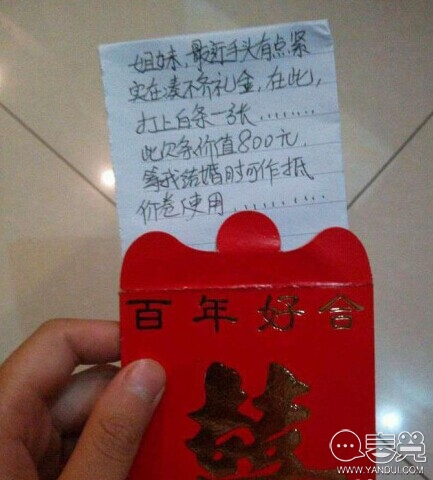 姐妹,最近手头有点紧
实在凑不齐礼金,在此,
打上白条一张........
此欠条价值800元.
等我结婚时可作抵
价卷使用...........
百年好合
囍
言兑
WWW.YANDUI.COM